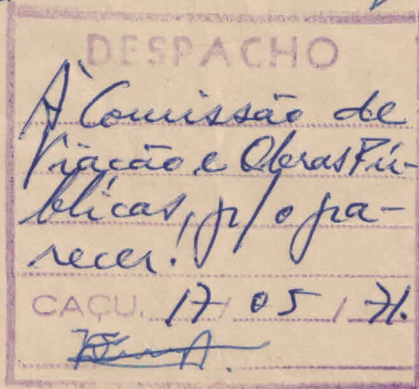 DESPACHO
À Comissão de
Viação e Obras Pú-
blicas, p/ o pa-
recer!
CAÇU, 17 / 05 / 71.